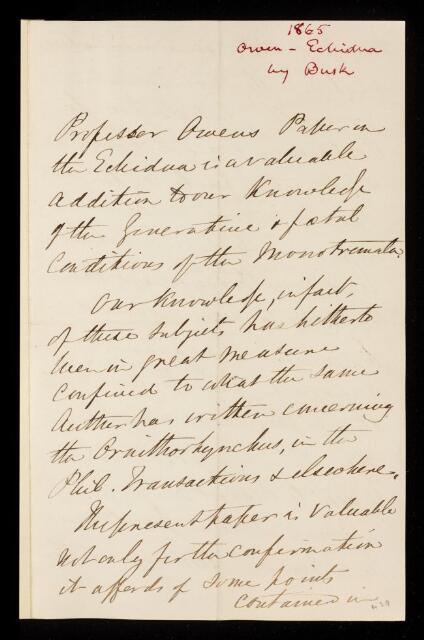 1865
Owen - Echidna
by Busk
Professor Owens Paper on
the Echidna is a valuable
addition to our Knowledge
of the Generative & fœtal
Conditions of the Monotremata.
Our Knowledge, in fact,
of these subjects has hitherto
been in great measure
confined to what the same
Author has written concerning
the Ornithorhynchus, in the
Phil. Transactions & elsewhere.
The present paper is valuable
not only for the confirmation
it affords of some points
contained in